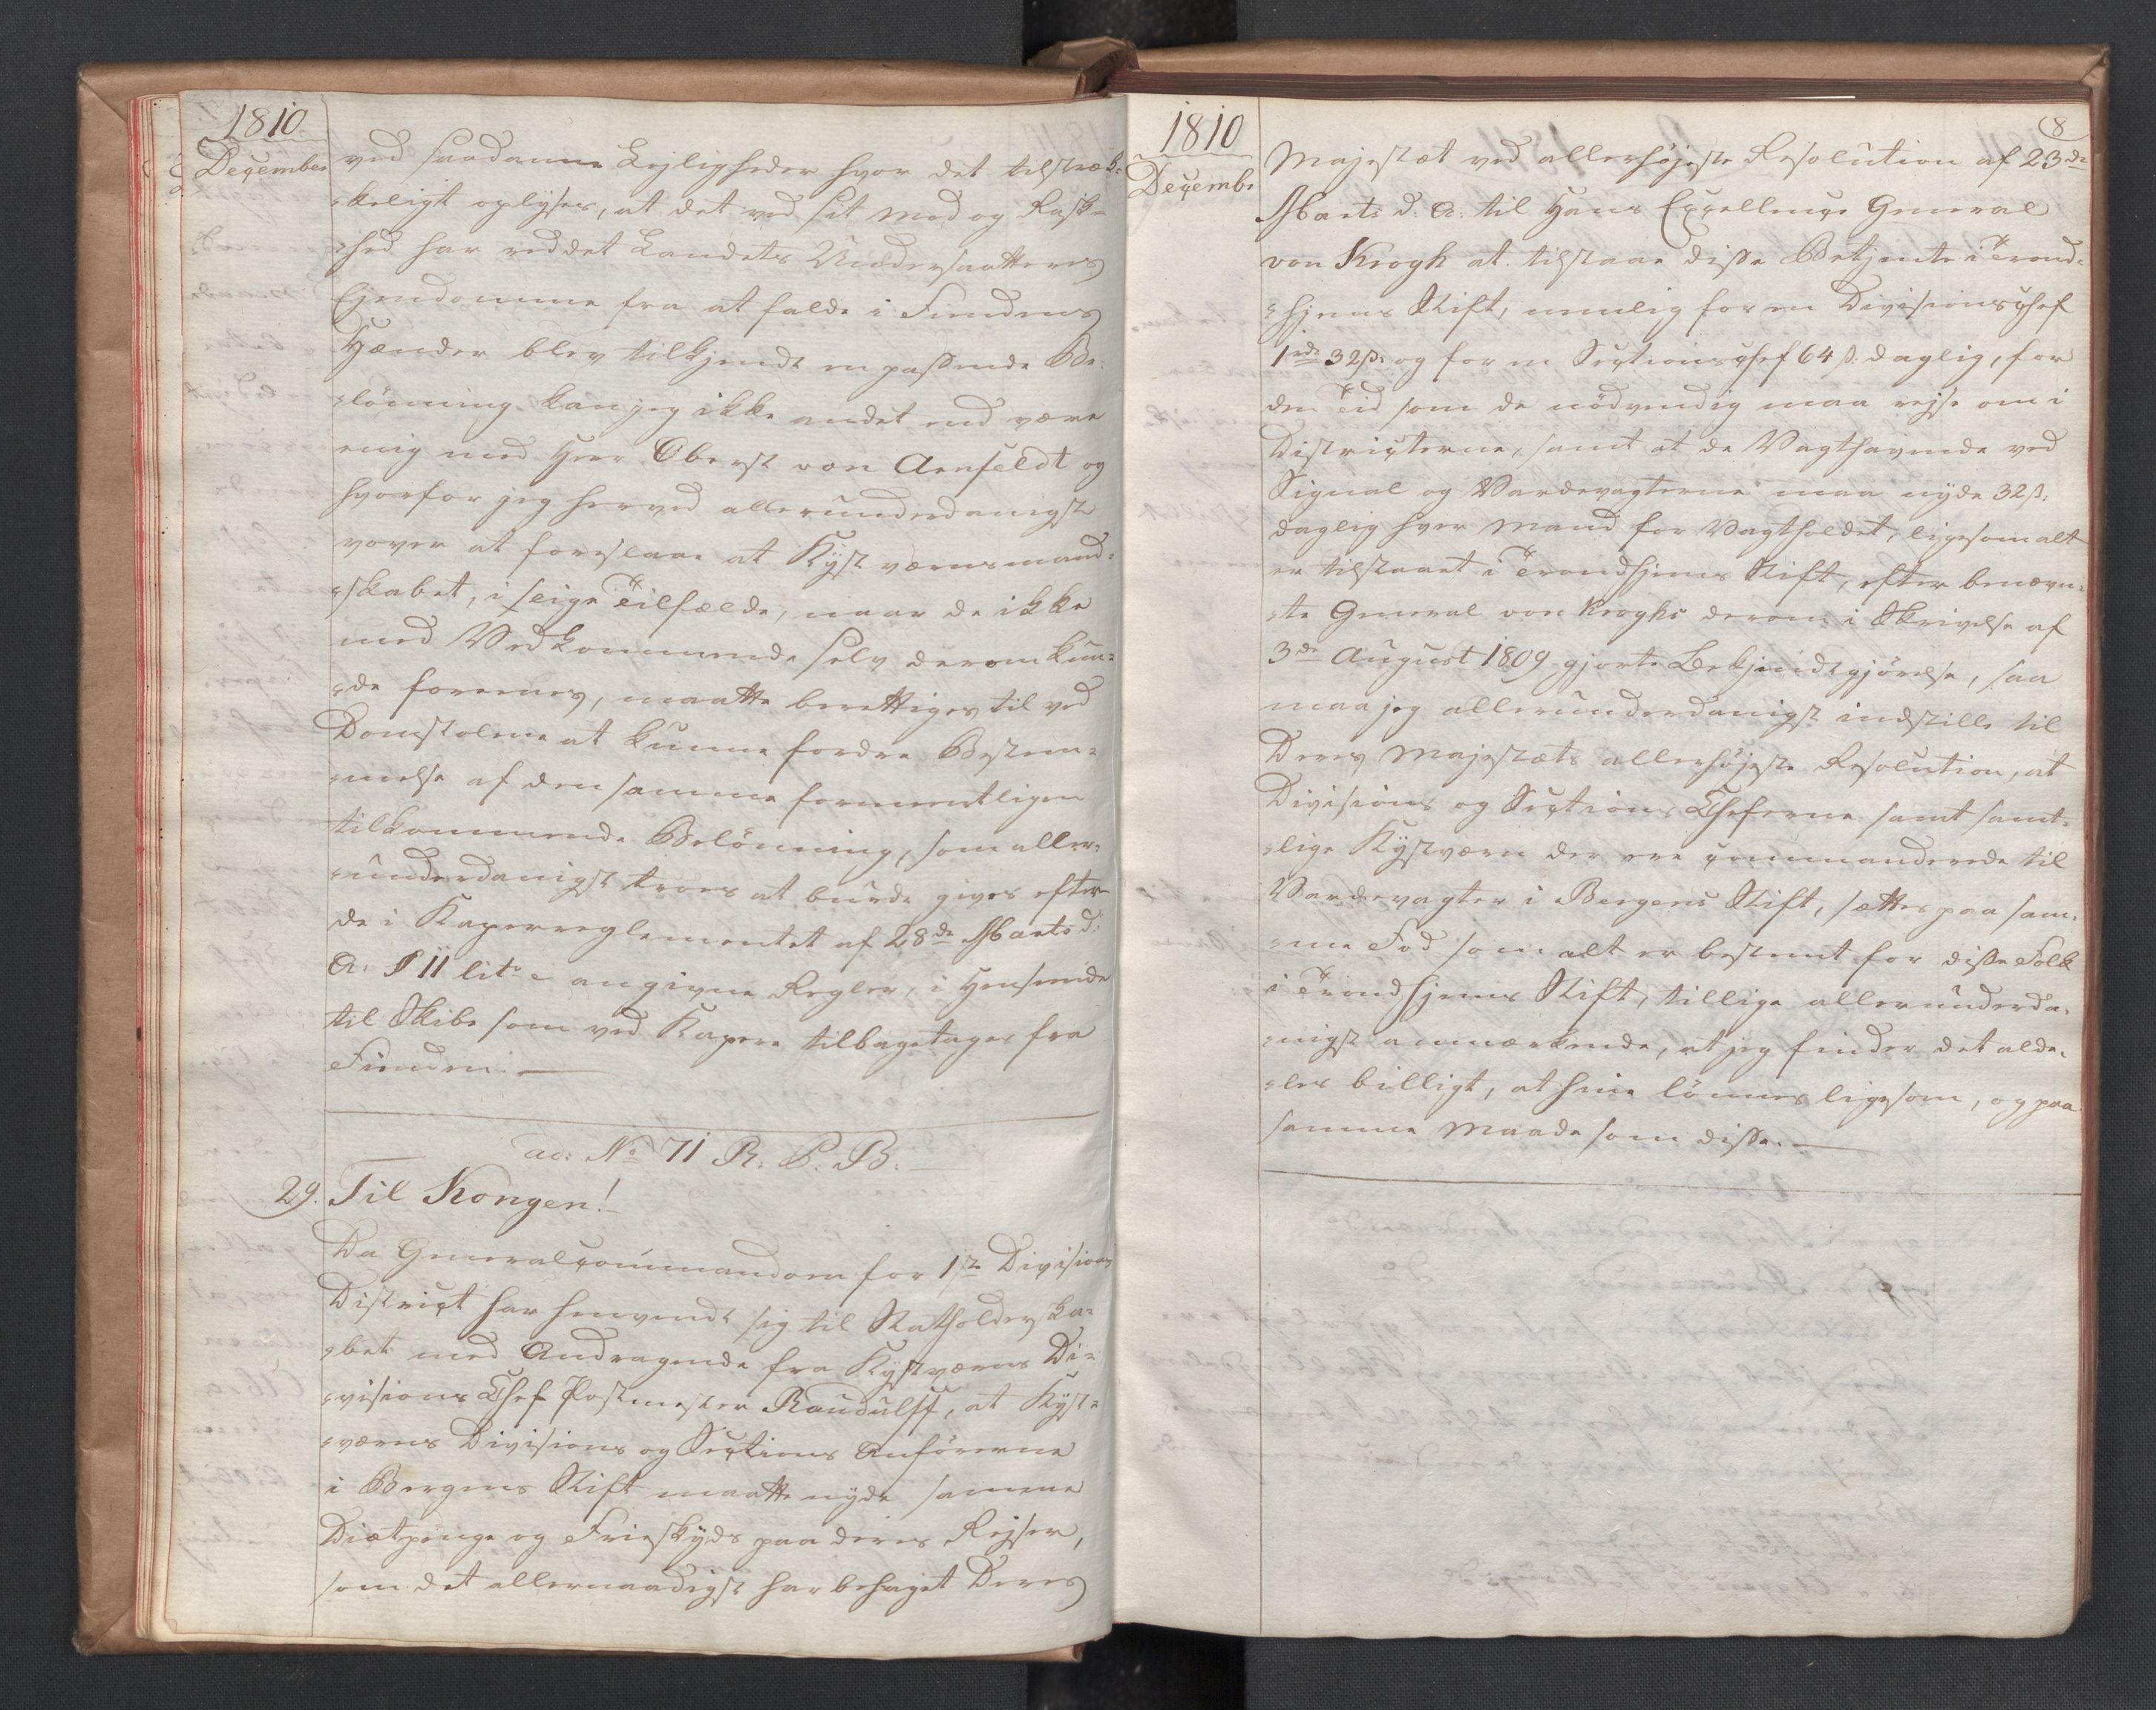 1810
December
ved saadanne Lejligheder hvor det tilstræk=
=keligt oplyses, at det ved sit Mod og Rask=
=hed har reddet Landets Undersaatters
Ejendomme fra at falde i Fiendens
Hænder blev tilkjendt en passende Be=
=lönning kan jeg ikke andet end være
enig med Herr Oberst von Arnfeldt og
hvorfor jeg herved allerunderdanigst
vover at foreslaae at Kystværnsmand=
=skabet, i slige Tilfælde, naar de ikke
med Vedkommende selv derom kun=
=de foreenes, maatte berettiges til ved
Domstolene at kunne fordre Bestem=
=melse af den samme formentligen
tilkommende Belönning, som aller=
=underdanigst troes at burde gives efter
de i Kaperreglementet af 28de Marts d:
A: § 11 lit: e angivne Regler, i Henseende
til Skibe som ved Kapere tilbagetages fra
Fienden. —
ad: No 71 R. P. B.
29. Til Kongen!
Da Generalcommandoen for 1ste Divisions
District har henvendt sig til Statholderska=
=bet med Andragende fra Kystværns Di=
=visions Chef Postmester Randulff, at Kyst=
=værns Divisions og Sections Anförerne
i Bergens Stift maatte nyde samme
Diætpenge og Frieskyds paa deres Rejser,
som det allernaadigst har behaget Deres
8
1810
Decembr
Majestæt ved allerhöjeste Resolution af 23de
Marts d: A: til Hans Excellence General
von Krogh at tilstaae disse Betjente i Trond=
=hjems Stift, nemlig for en Divisionschef
1rd 32ß: og for en Sectionschef 64 ß: daglig, for
den Tid som de nödvendig maa rejse om i
Districterne, samt at de Vagthavende ved
Signal og Vardevagterne maa nyde 32ß:
daglig hver Mand for Vagtholdet, ligesom alt
er tilstaaet i Trondhjems Stift, efter benævn=
=te General von Kroghs derom i Skrivelse af
3de August 1809 gjorte Bekjendtgjörelse, saa
maa jeg allerunderdanigst indstille til
Deres Majestæts allerhöjeste Resolution, at
Divisions og Sections Cheferne samt samt=
=lige Kystværn der ere commanderede til
Vardevagter i Bergens Stift, sættes paa sam=
=me Fod som alt er bestemt for disse Folk
i Trondhjems Stift, tillige allerunderda=
=nigst anmærkende, at jeg finder det alde=
=les billigt, at hine lönnes ligesom, og paa
samme Maade som disse. —